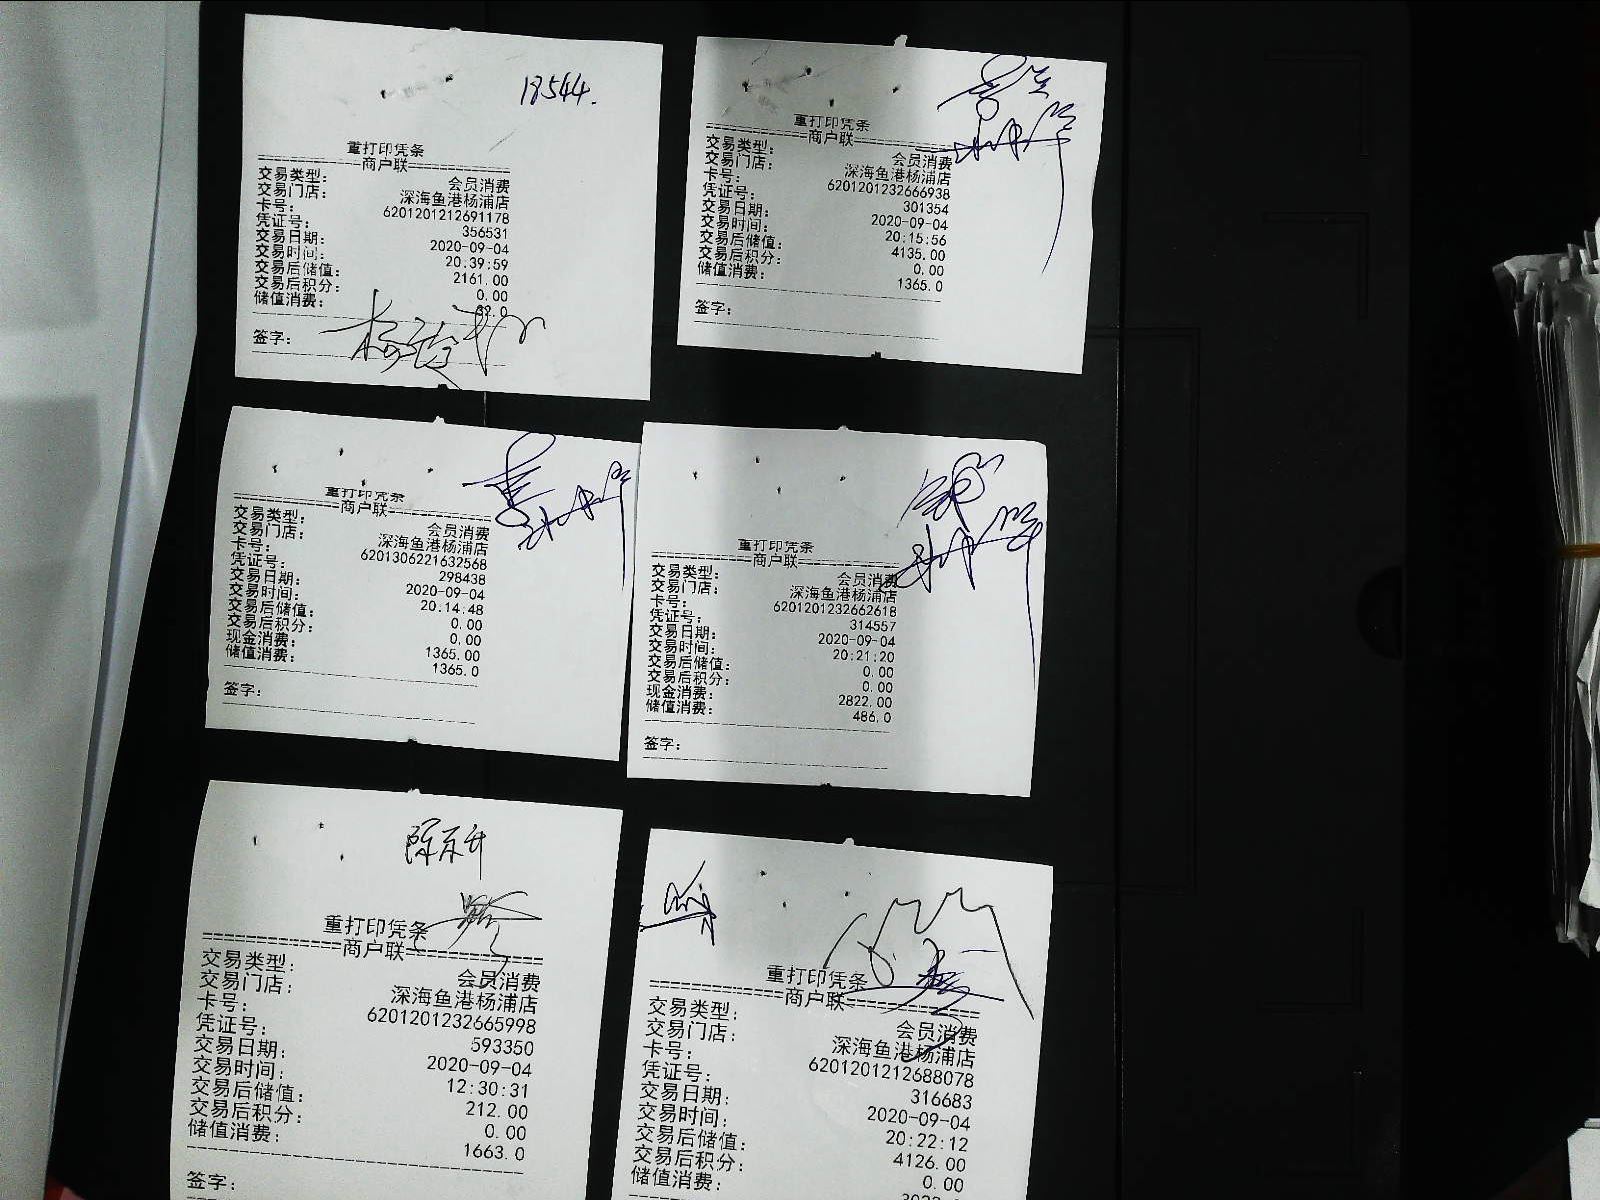 18544.
重打印凭条
商户联
交易类型： 会员消费
交易门店： 深海鱼港杨浦店
卡号： 6201201212691178
凭证号： 356531
交易日期： 2020-09-04
交易时间： 20:39:59
交易后储值： 2161.00
交易后积分： 0.00
储值消费： 32.0
签字：
重打印凭条
商户联
交易类型： 会员消费
交易门店： 深海鱼港杨浦店
卡号： 6201201232666938
凭证号： 301354
交易日期： 2020-09-04
交易时间： 20:15:56
交易后储值： 4135.00
交易后积分： 0.00
储值消费： 1365.0
签字：
重打印凭条
商户联
交易类型： 会员消费
交易门店： 深海鱼港杨浦店
卡号： 6201306221632568
凭证号： 298438
交易日期： 2020-09-04
交易时间： 20:14:48
交易后储值： 0.00
交易后积分： 0.00
现金消费： 1365.00
储值消费： 1365.0
签字：
重打印凭条
商户联
交易类型： 会员消费
交易门店： 深海鱼港杨浦店
卡号： 6201201232662618
凭证号： 314557
交易日期： 2020-09-04
交易时间： 20:21:20
交易后储值： 0.00
交易后积分： 0.00
现金消费： 2822.00
储值消费： 486.0
签字：
重打印凭条
商户联
交易类型： 会员消费
交易门店： 深海鱼港杨浦店
卡号： 6201201232665998
凭证号： 593350
交易日期： 2020-09-04
交易时间： 12:30:31
交易后储值： 212.00
交易后积分： 0.00
储值消费： 1663.0
签字：
重打印凭条
商户联
交易类型： 会员消费
交易门店： 深海鱼港杨浦店
卡号： 6201201212688078
凭证号： 316683
交易日期： 2020-09-04
交易时间： 20:22:12
交易后储值： 4126.00
交易后积分： 0.00
储值消费：